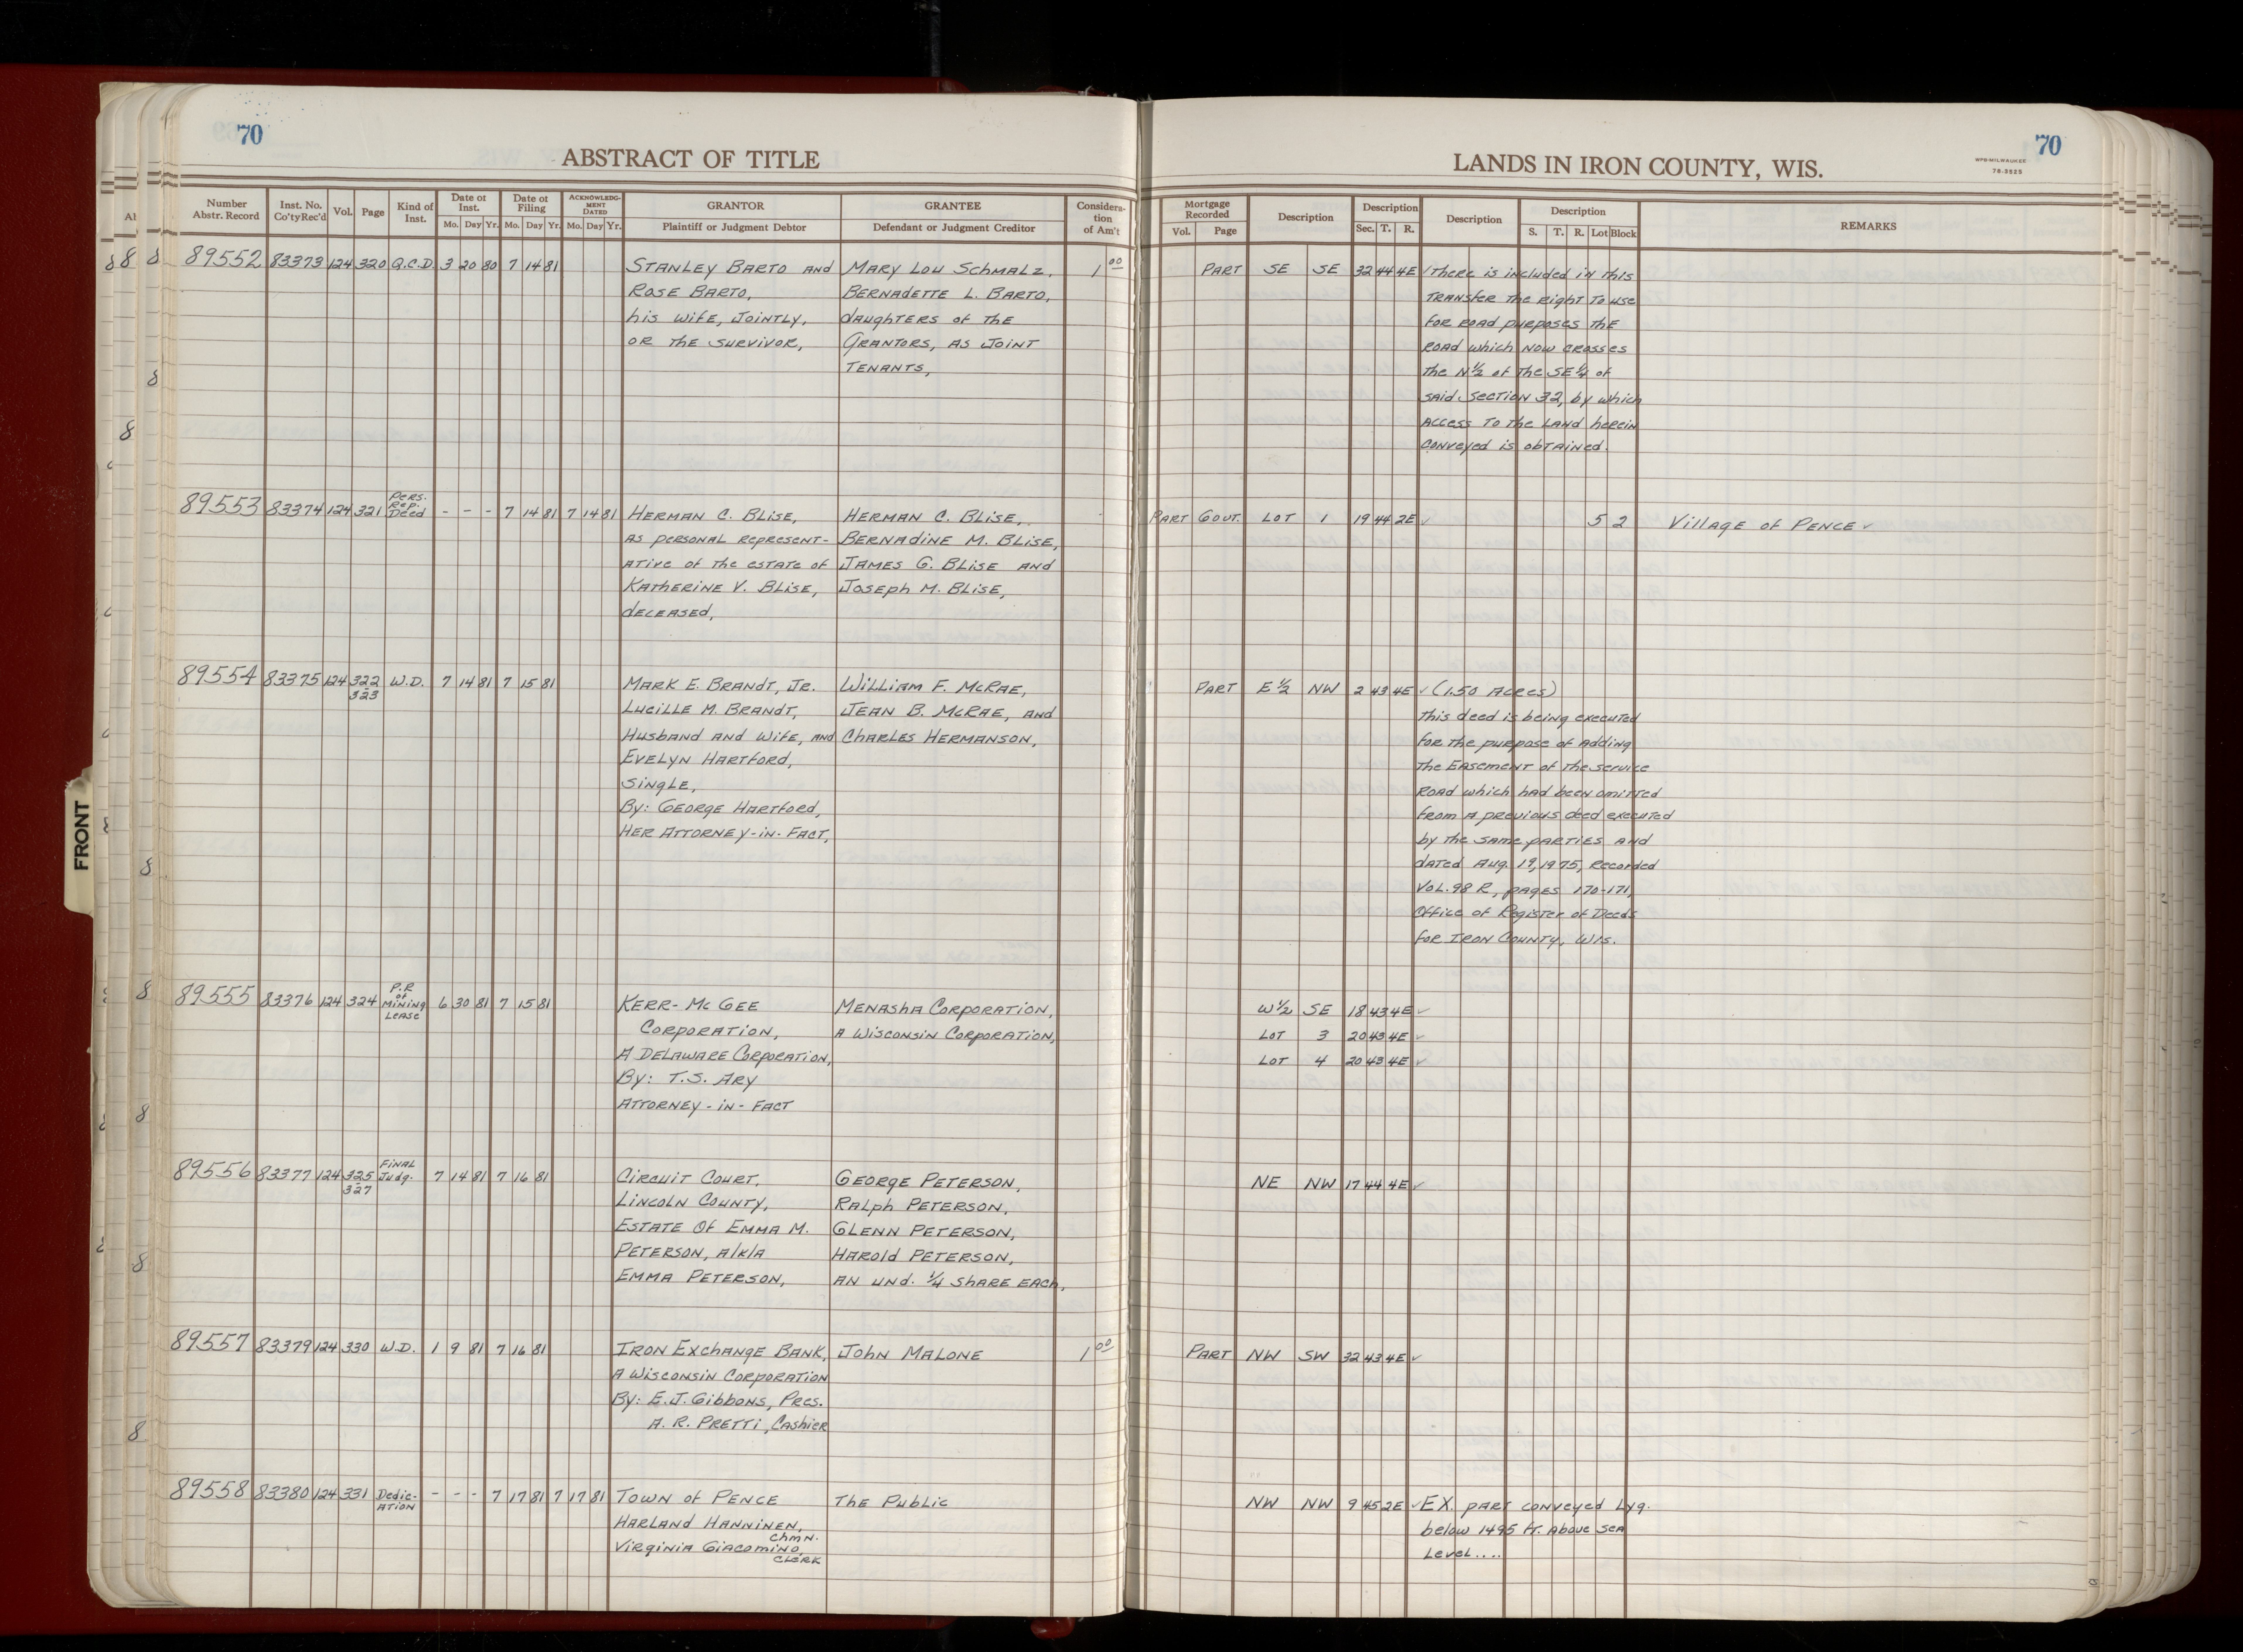 70
ABSTRACT OF TITLE
Number Abstr. Record | Inst. No. Co'ty Rec'd | Vol. | Page | Kind of Inst. | Date of Inst. Mo. Day Yr. | Date of Filing Mo. Day Yr. | ACKNOWLEDGMENT DATED Mo. Day Yr. | GRANTOR Plaintiff or Judgment Debtor | GRANTEE Defendant or Judgment Creditor | Consideration of Am't
89552 83373 124 320 Q.C.D. 3 20 80 7 14 81 STANLEY BARTO AND MARY LOU SCHMALZ, 1 00
ROSE BARTO, BERNADETTE L. BARTO,
his wife, JOINTLY, daughters of the
OR the SURVIVOR, GRANTORS, AS JOINT
TENANTS,
89553 83374 124 321 Pers. Rep. Deed - - - 7 14 81 7 14 81 HERMAN C. BLISE, HERMAN C. BLISE,
AS PERSONAL REPRESENT- BERNADINE M. BLISE,
ATIVE of the ESTATE of JAMES G. BLISE AND
KATHERINE V. BLISE, JOSEPH M. BLISE,
DECEASED,
89554 83375 124 322-323 W.D. 7 14 81 7 15 81 MARK E. BRANDT, JR. WILLIAM F. McRAE,
LUCILLE M. BRANDT, JEAN B. McRAE, AND
HUSBAND AND WIFE, AND CHARLES HERMANSON,
EVELYN HARTFORD,
SINGLE,
By: GEORGE HARTFORD,
HER ATTORNEY-IN-FACT,
89555 83376 124 324 P.R of MINING LEASE 6 30 81 7 15 81 KERR-McGEE MENASHA CORPORATION,
CORPORATION, A WISCONSIN CORPORATION,
A DELAWARE CORPORATION,
By: T.S. ARY
ATTORNEY-IN-FACT
89556 83377 124 325-327 FINAL Judg. 7 14 81 7 16 81 CIRCUIT COURT, GEORGE PETERSON,
LINCOLN COUNTY, RALPH PETERSON,
ESTATE OF EMMA M. GLENN PETERSON,
PETERSON, A/K/A HAROLD PETERSON,
EMMA PETERSON, AN UND. 1/4 SHARE EACH,
89557 83379 124 330 W.D. 1 9 81 7 16 81 IRON EXCHANGE BANK, JOHN MALONE 1 00
A WISCONSIN CORPORATION
By: E.J. GIBBONS, PRES.
A. R. PRETTI, Cashier
89558 83380 124 331 Dedic-ATION - - - 7 17 81 7 17 81 TOWN of PENCE The PUBLIC
HARLAND HANNINEN, Chmn.
VIRGINIA GIACOMINO, CLERK
FRONT
70
LANDS IN IRON COUNTY, WIS.
WPB-MILWAUKEE
76-3525
Mortgage Recorded Vol. Page | Description | Description Sec. T. R. | Description | Description S. T. R. Lot Block | REMARKS
PART SE SE 32 44 4E ✓ THERE is included in this
TRANSFER the Right to use
for ROAD purposes the
ROAD which NOW CROSSES
the N½ of the SE¼ of
said SECTION 32, by which
ACCESS TO the LAND herein
CONVEYED is OBTAINED.
PART GOVT. LOT 1 19 44 2E ✓ 5 2 Village of PENCE ✓
PART E½ NW 2 43 4E ✓ (1.50 ACRES)
This deed is being executed
for the purpose of adding
the EASEMENT of the service
ROAD which had been omitted
from A previous deed executed
by the same PARTIES AND
dated Aug. 19, 1975, Recorded
VOL. 98 R, pages 170-171,
Office of Register of Deeds
for IRON COUNTY, WIS.
W½ SE 18 43 4E ✓
LOT 3 20 43 4E ✓
LOT 4 20 43 4E ✓
NE NW 17 44 4E ✓
PART NW SW 32 43 4E ✓
NW NW 9 45 2E ✓ EX. PART conveyed Lyg.
below 1495 ft. Above SEA
Level....